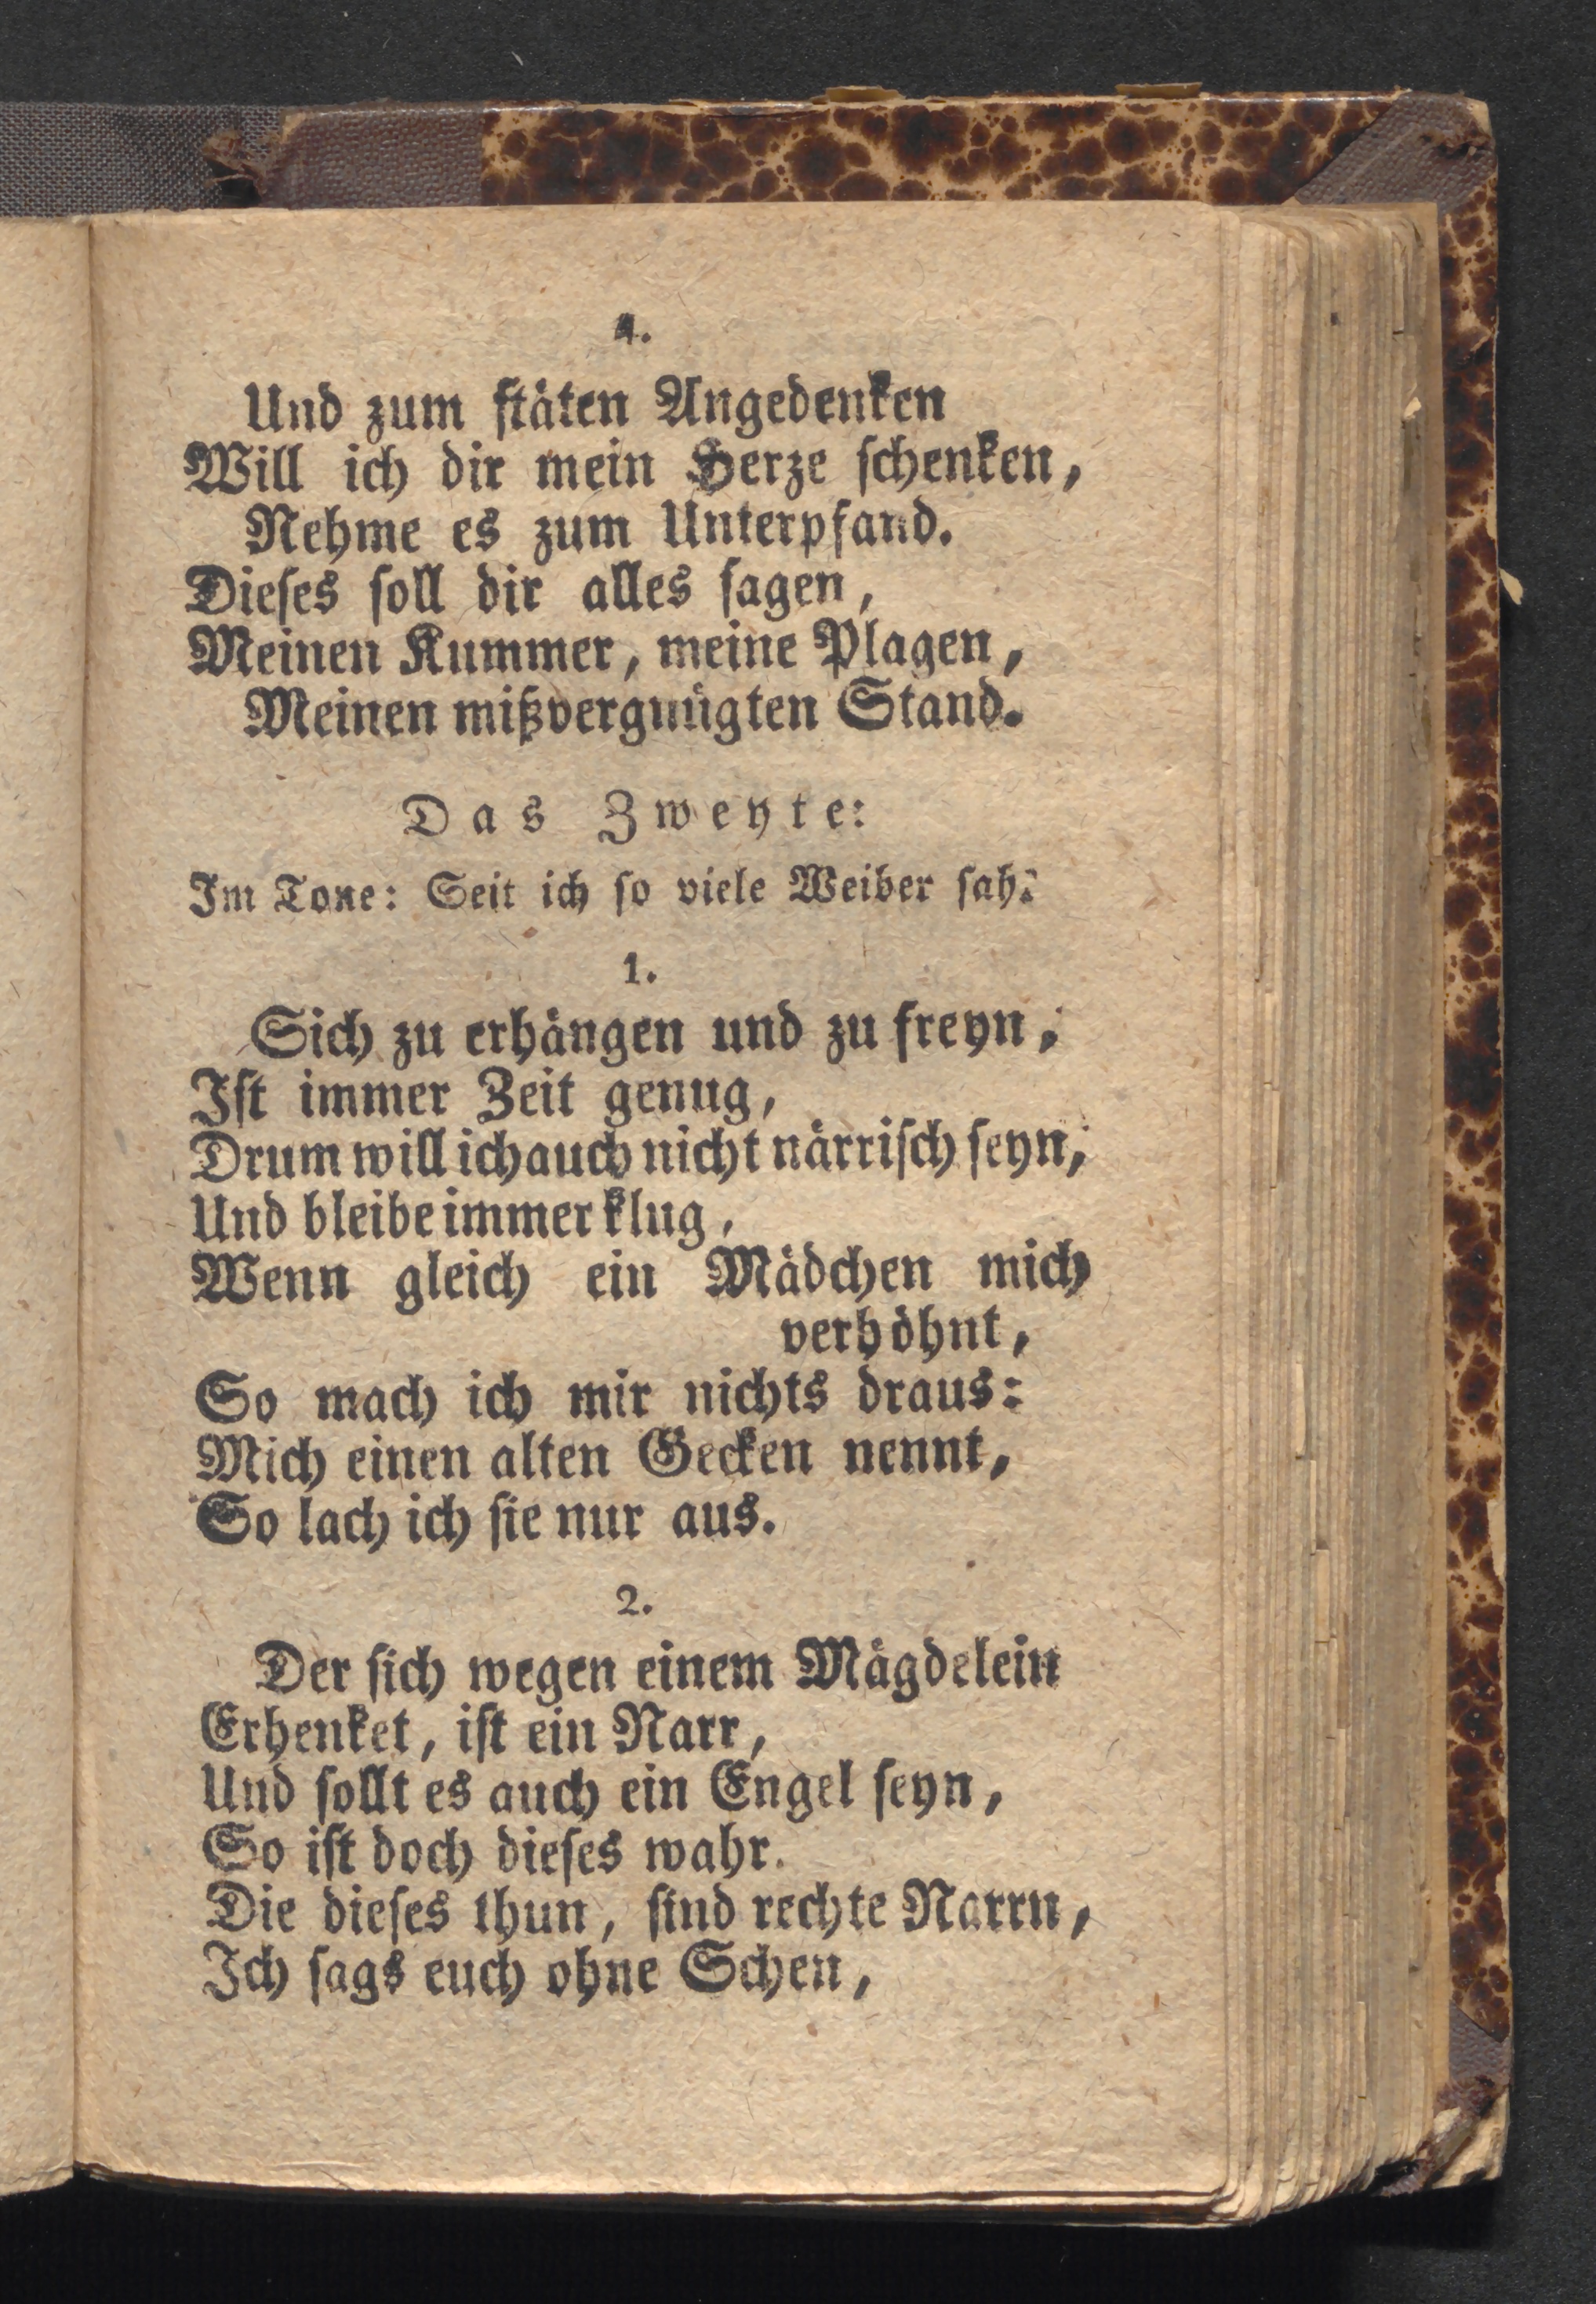 4.
Und zum ſtäten Angedenken
Will ich dir mein Herze ſchenken,
Nehme es zum Unterpfand.
Dieſes ſoll dir alles ſagen,
Meinen Kummer, meine Plagen,
Meinen mißvergnügten Stand.
Das Zweyte:
Im Tone: Seit ich ſo viele Weiber ſah:
1.
Sich zu erhängen und zu freyn,
Iſt immer Zeit genug,
Drum will ich auch nicht närriſch ſeyn,
Und bleibe immer klug,
Wenn gleich ein Mädchen mich
verhöhnt,
So mach ich mir nichts draus:
Mich einen alten Gecken nennt,
So lach ich ſie nur aus.
2.
Der ſich wegen einem Mägdelein
Erhenket, iſt ein Narr,
Und ſollt es auch ein Engel ſeyn,
So iſt doch dieſes wahr.
Die dieſes thun, ſind rechte Narrn,
Ich ſags euch ohne Schen,